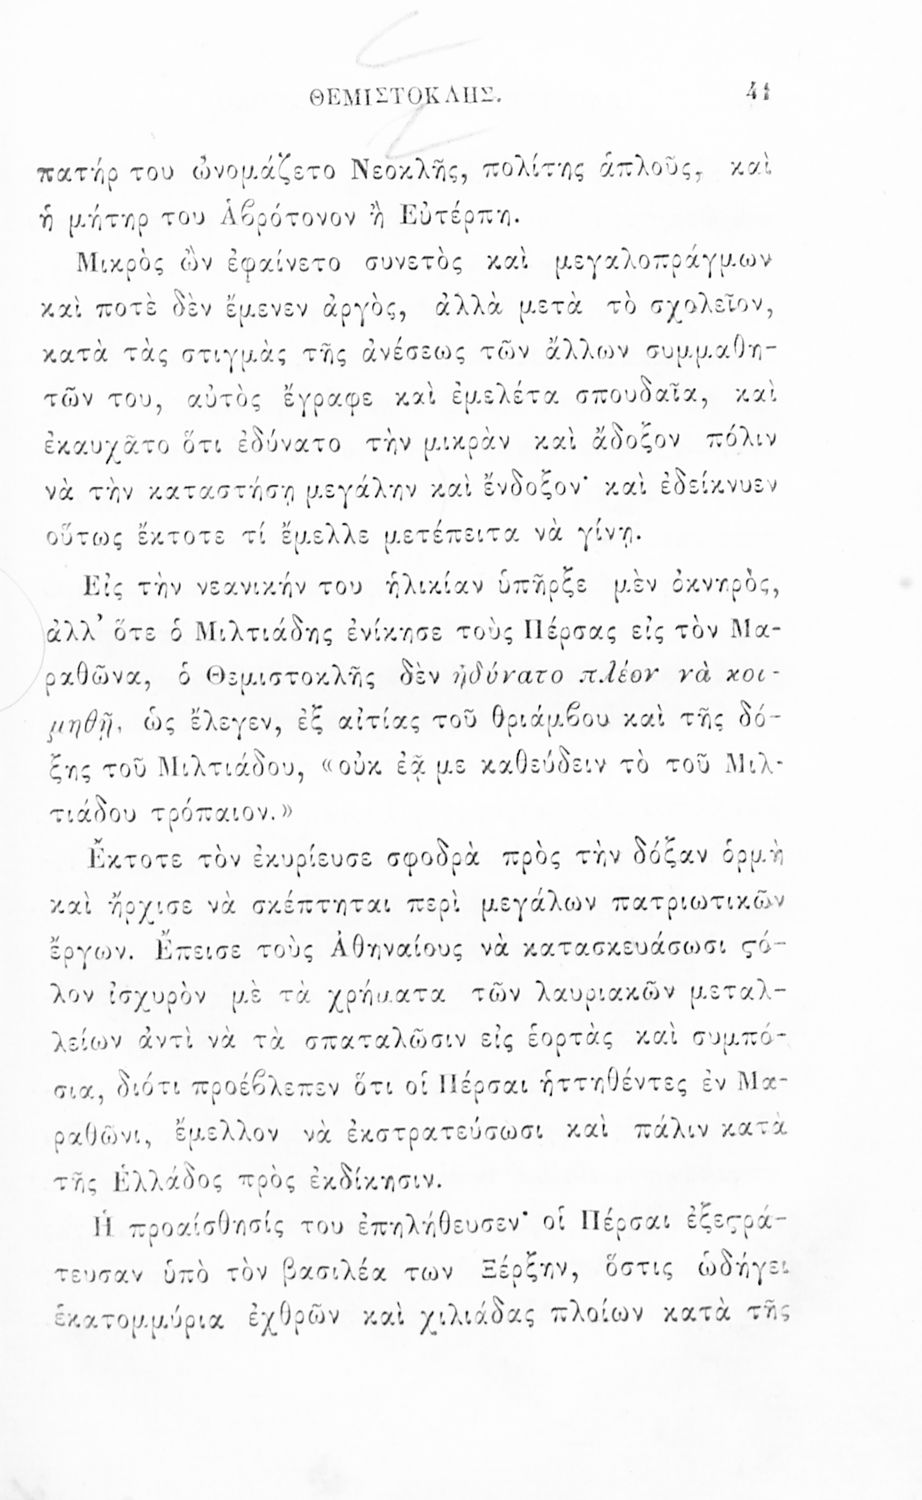 ΘΕΜΙΣΤΟΚΛΗΣ. 41
πατήρ του ὠνομάζετο Νεοκλῆς, πολίτης ἁπλοῦς, καὶ
ἡ μήτηρ του Ἀβρότονον ἢ Εὐτέρπη.
Μικρὸς ὢν ἐφαίνετο συνετὸς καὶ μεγαλοπράγμων
καὶ ποτὲ δὲν ἔμενεν ἀργὸς, ἀλλὰ μετὰ τὸ σχολεῖον,
κατὰ τὰς στιγμὰς τῆς ἀνέσεως τῶν ἄλλων συμμαθη-
τῶν του, αὐτὸς ἔγραφε καὶ ἐμελέτα σπουδαῖα, καὶ
ἐκαυχᾶτο ὅτι ἐδύνατο τὴν μικρὰν καὶ ἄδοξον πόλιν
νὰ τὴν καταστήσῃ μεγάλην καὶ ἔνδοξον· καὶ ἐδείκνυεν
οὕτως ἔκτοτε τί ἔμελλε μετέπειτα νὰ γίνῃ.
Εἰς τὴν νεανικήν του ἡλικίαν ὑπῆρξε μὲν ὀκνηρὸς,
ἀλλ’ ὅτε ὁ Μιλτιάδης ἐνίκησε τοὺς Πέρσας εἰς τὸν Μα-
ραθῶνα, ὁ Θεμιστοκλῆς δὲν ἠδύνατο πλέον νὰ κοι-
μηθῇ, ὡς ἔλεγεν, ἐξ αἰτίας τοῦ θριάμβου καὶ τῆς δό-
ξης τοῦ Μιλτιάδου, «οὐκ ἐᾷ με καθεύδειν τὸ τοῦ Μιλ-
τιάδου τρόπαιον.»
Ἔκτοτε τὸν ἐκυρίευσε σφοδρὰ πρὸς τὴν δόξαν ὁρμὴ
καὶ ἤρχισε νὰ σκέπτηται περὶ μεγάλων πατριωτικῶν
ἔργων. Ἔπεισε τοὺς Ἀθηναίους νὰ κατασκευάσωσι ϛό-
λον ἰσχυρὸν μὲ τὰ χρήματα τῶν λαυριακῶν μεταλ-
λείων ἀντὶ νὰ τὰ σπαταλῶσιν εἰς ἑορτὰς καὶ συμπό-
σια, διότι προέβλεπεν ὅτι οἱ Πέρσαι ἡττηθέντες ἐν Μα-
ραθῶνι, ἔμελλον νὰ ἐκστρατεύσωσι καὶ πάλιν κατὰ
τῆς Ἑλλάδος πρὸς ἐκδίκησιν.
Ἡ προαίσθησίς του ἐπηλήθευσεν· οἱ Πέρσαι ἐξεϛρά-
τευσαν ὑπὸ τὸν βασιλέα των Ξέρξην, ὅστις ὡδήγει
ἑκατομμύρια ἐχθρῶν καὶ χιλιάδας πλοίων κατὰ τῆς